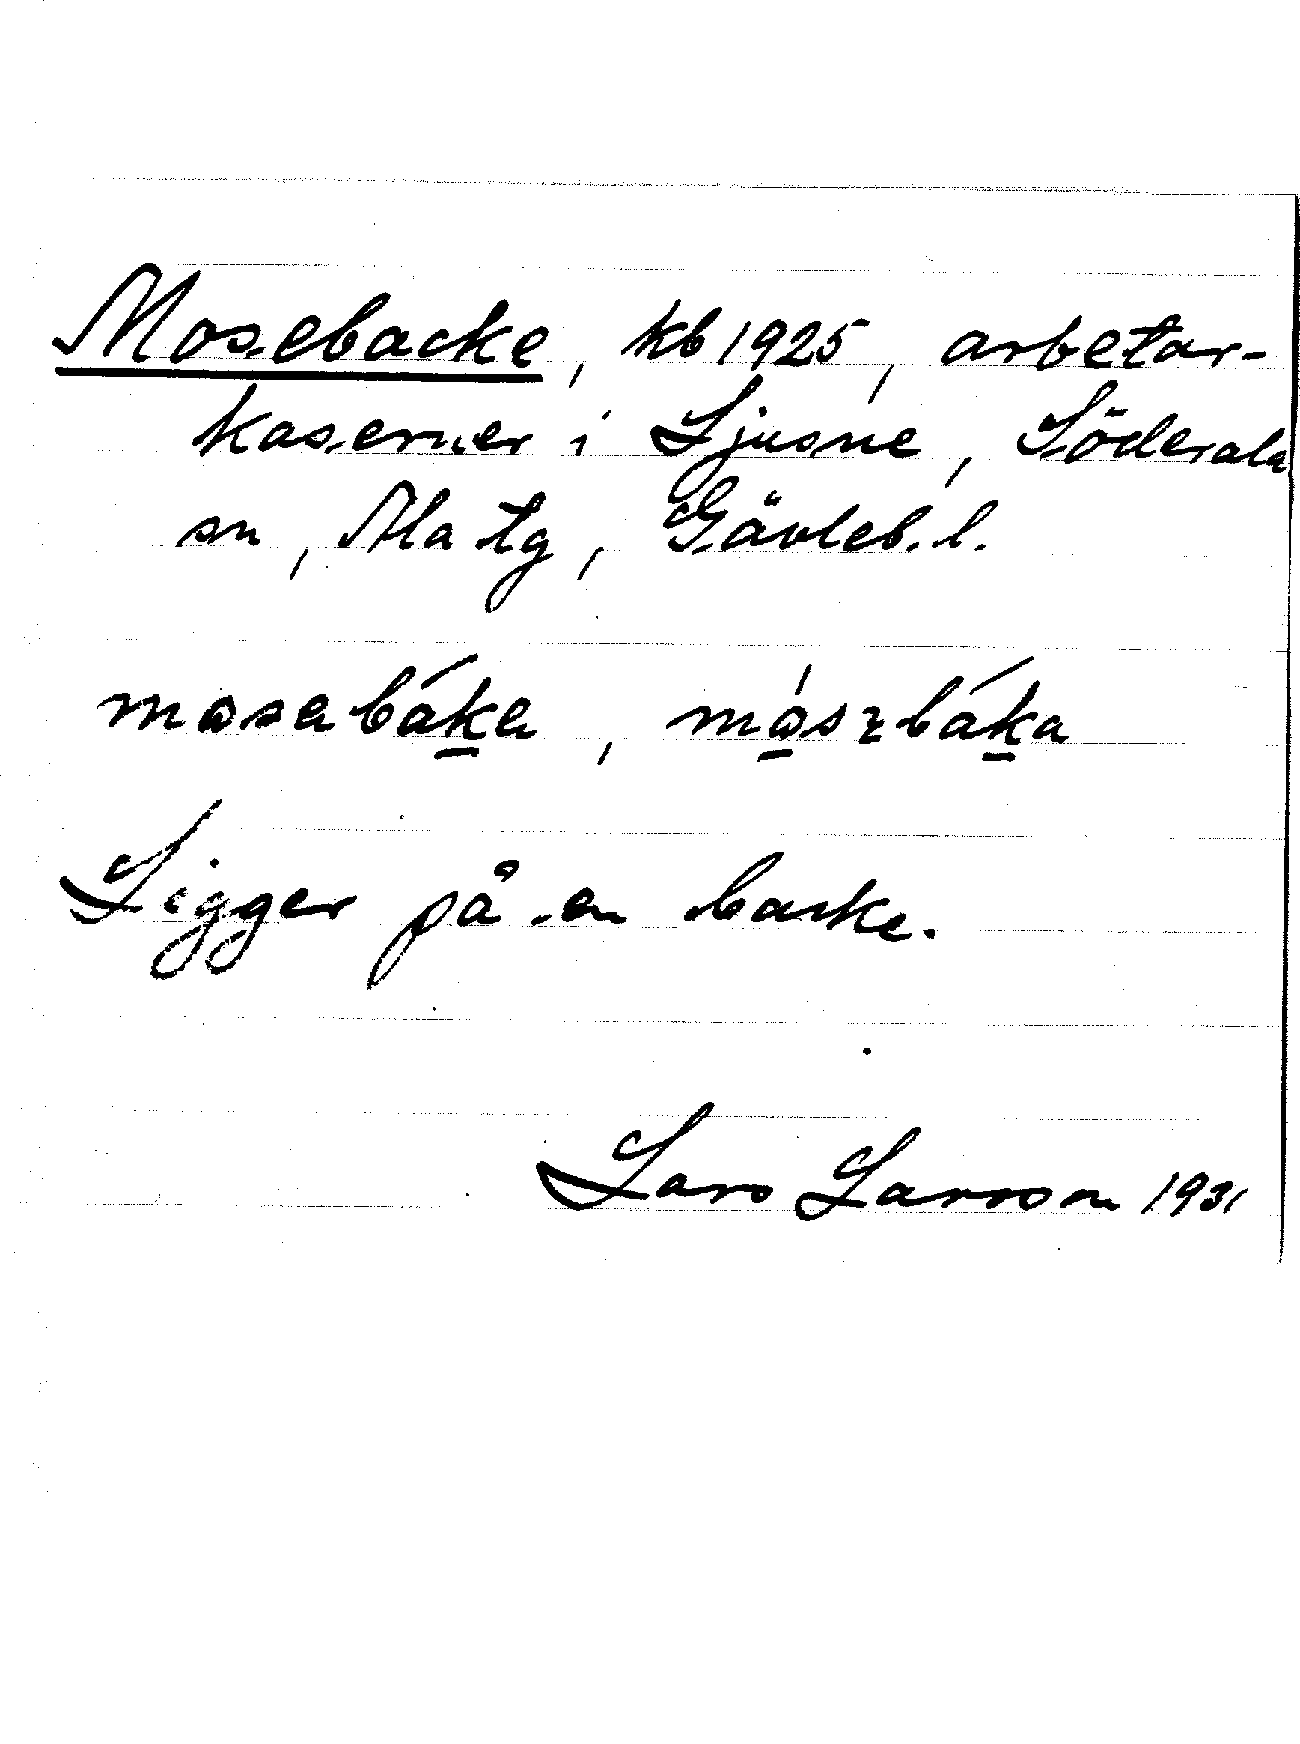 Mosebacke, kb 1925, arbetar-
kaserner i Ljusne, Söderala
sn, Ala tg, Gävleb. l.
mosabáka, mós​ɿbáka
Ligger på en backe.
Lars Larsson 1931